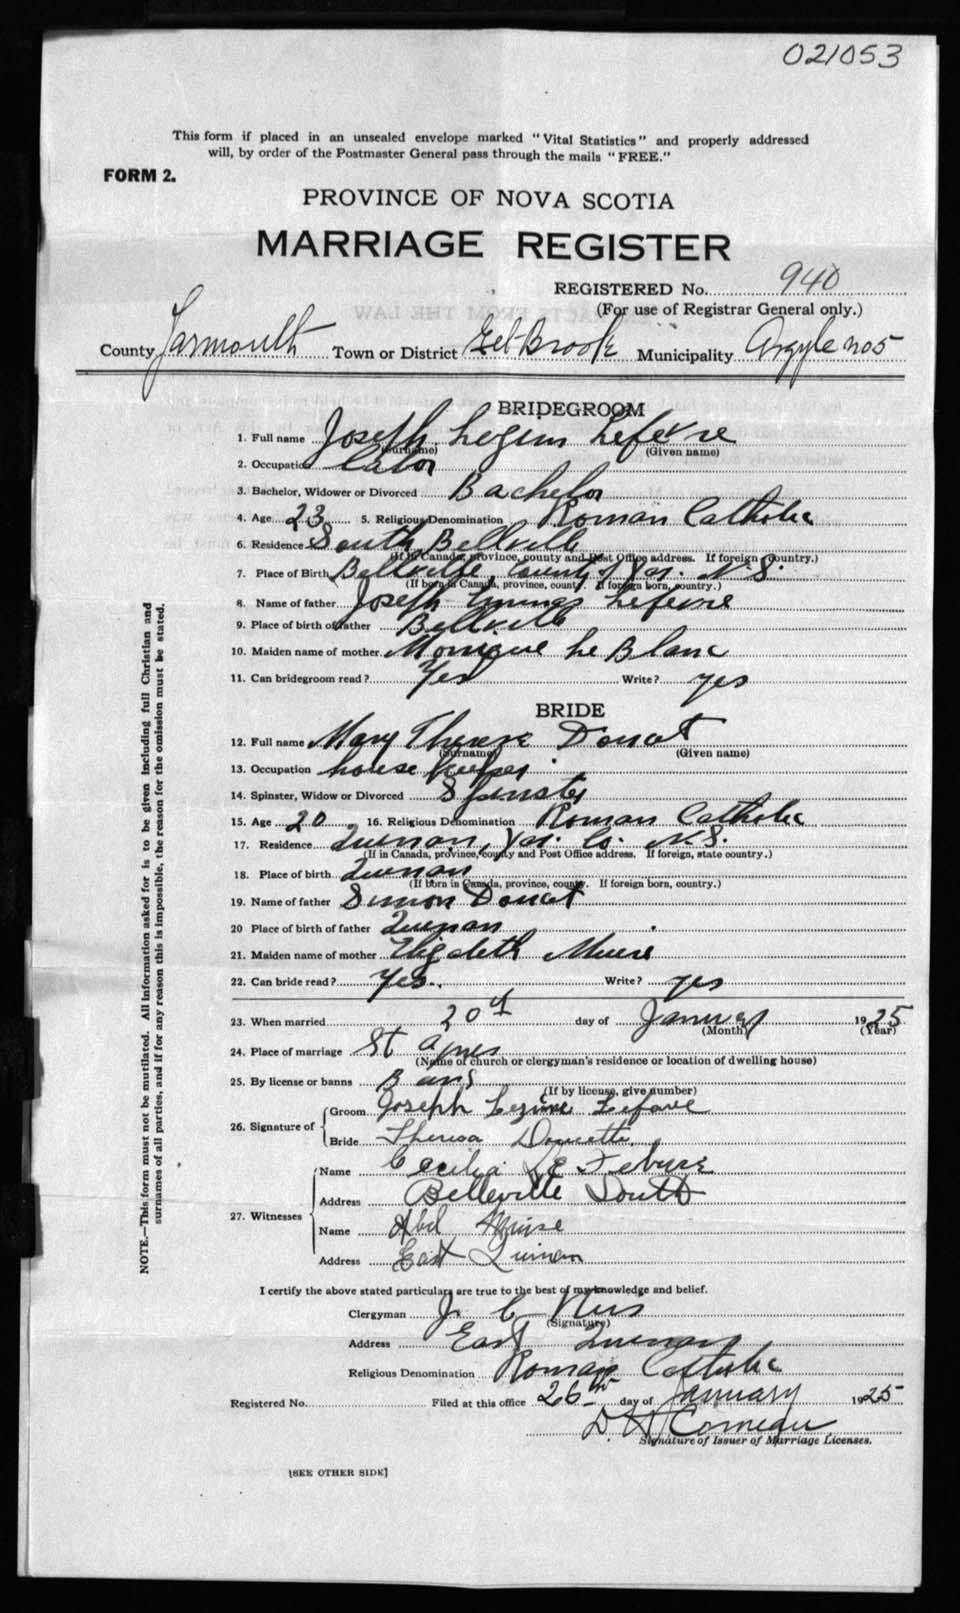 021053
This form if placed in an unsealed envelope marked "Vital Statistics" and properly addressed
will, by order of the Postmaster General pass through the mails "FREE."
FORM 2.
PROVINCE OF NOVA SCOTIA
MARRIAGE REGISTER
REGISTERED No. 940
(For use of Registrar General only.)
County Yarmouth Town or District Eel Brook Municipality Argyle no 5
BRIDEGROOM
1. Full name Joseph Lefevre
(Surname) (Given name)
2. Occupation Labor
3. Bachelor, Widower or Divorced Bachelor
4. Age 23 5. Religious Denomination Roman Catholic
6. Residence South Bellville
(If in Canada, province, county and Post Office address. If foreign country.)
7. Place of Birth Bellville, County of Yar. N.S.
(If born in Canada, province, county. If foreign born, country.)
8. Name of father Joseph Lefevre
9. Place of birth of father Bellville
10. Maiden name of mother Monique Le Blanc
11. Can bridegroom read? Yes Write? yes
BRIDE
12. Full name Mary Therese Doucet
(Surname) (Given name)
13. Occupation house keeper
14. Spinster, Widow or Divorced Spinster
15. Age 20 16. Religious Denomination Roman Catholic
17. Residence Quinan, Yar. Co. N.S.
(If in Canada, province, county and Post Office address. If foreign, state country.)
18. Place of birth Quinan
(If born in Canada, province, county. If foreign born, country.)
19. Name of father Simon Doucet
20 Place of birth of father Quinan
21. Maiden name of mother Elizabeth Muise
22. Can bride read? Yes. Write? yes
23. When married 20th day of January 1925
(Month) (Year)
24. Place of marriage St Agnes
(Name of church or clergyman's residence or location of dwelling house)
25. By license or banns Bans
(If by license, give number)
26. Signature of Groom Joseph Lezime Lefave
Bride Theresa Doucette
27. Witnesses Name Cecilia Le Febvre
Address Belleville South
Name Abel Muise
Address East Quinan
I certify the above stated particulars are true to the best of my knowledge and belief.
Clergyman J. C.
(Signature)
Address East Quinan
Religious Denomination Roman Catholic
Registered No. Filed at this office 26th day of January 1925
D. H Comeau
Signature of Issuer of Marriage Licenses.
[SEE OTHER SIDE]
NOTE.—This form must not be mutilated. All information asked for is to be given including full Christian and
surnames of all parties, and if for any reason this is impossible, the reason for the omission must be stated.